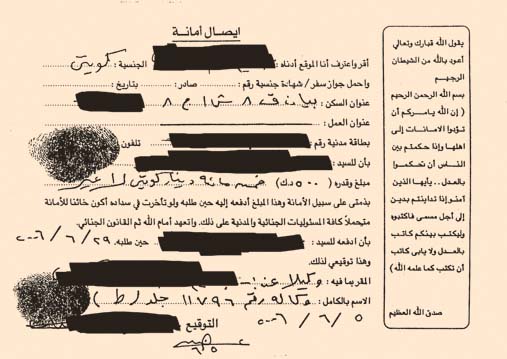 ايصال أمانة
أقر وأعترف أنا الموقع أدناه الجنسية: كويتي
واحمل جواز سفر/ شهادة جنسية رقم: صادر: بتاريخ:
عنوان السكن: بيان ق ٨ ش ١ ج ٨
عنوان العمل:
بطاقة مدنية رقم تلفون
بأن للسيد:
مبلغ وقدره (٥٠٠ د.ك) خمسمائة دينار كويتي لا غير
بذمتى على سبيل الأمانة وهذا المبلغ ادفعه إليه حين طلبه ولو تأخرت في سداده أكون خائنا للأمانة
متحملاً كافة المسئوليات الجنائية والمدنية على ذلك. واتعهد أمام الله ثم القانون الجنائي.
بأن ادفعه للسيد: حين طلبه. ٢٩/٦/٢٠٠٦
وهذا توقيعي لذلك.
المقر بما فيه: وكيلا عن
الاسم بالكامل: وكالة رقم ١١٧٩٦ جلد
التوقيع ٥/٦/٢٠٠٦
يقول الله تبارك وتعالي
أعوذ بالله من الشيطان
الرجيم
بسم الله الرحمن الرحيم
( إن الله يأمركم أن
تؤدوا الامانات إلى
اهلها وإذا حكمتم بين
الناس أن تحكموا
بالعدل.. يأيها الذين
آمنوا إذا تداينتم بدين
إلى أجل مسمى فاكتبوه
وليكتب بينكم كاتب
بالعدل ولا يابى كاتب
أن تكتب كما علمه الله )
صدق الله العظيم